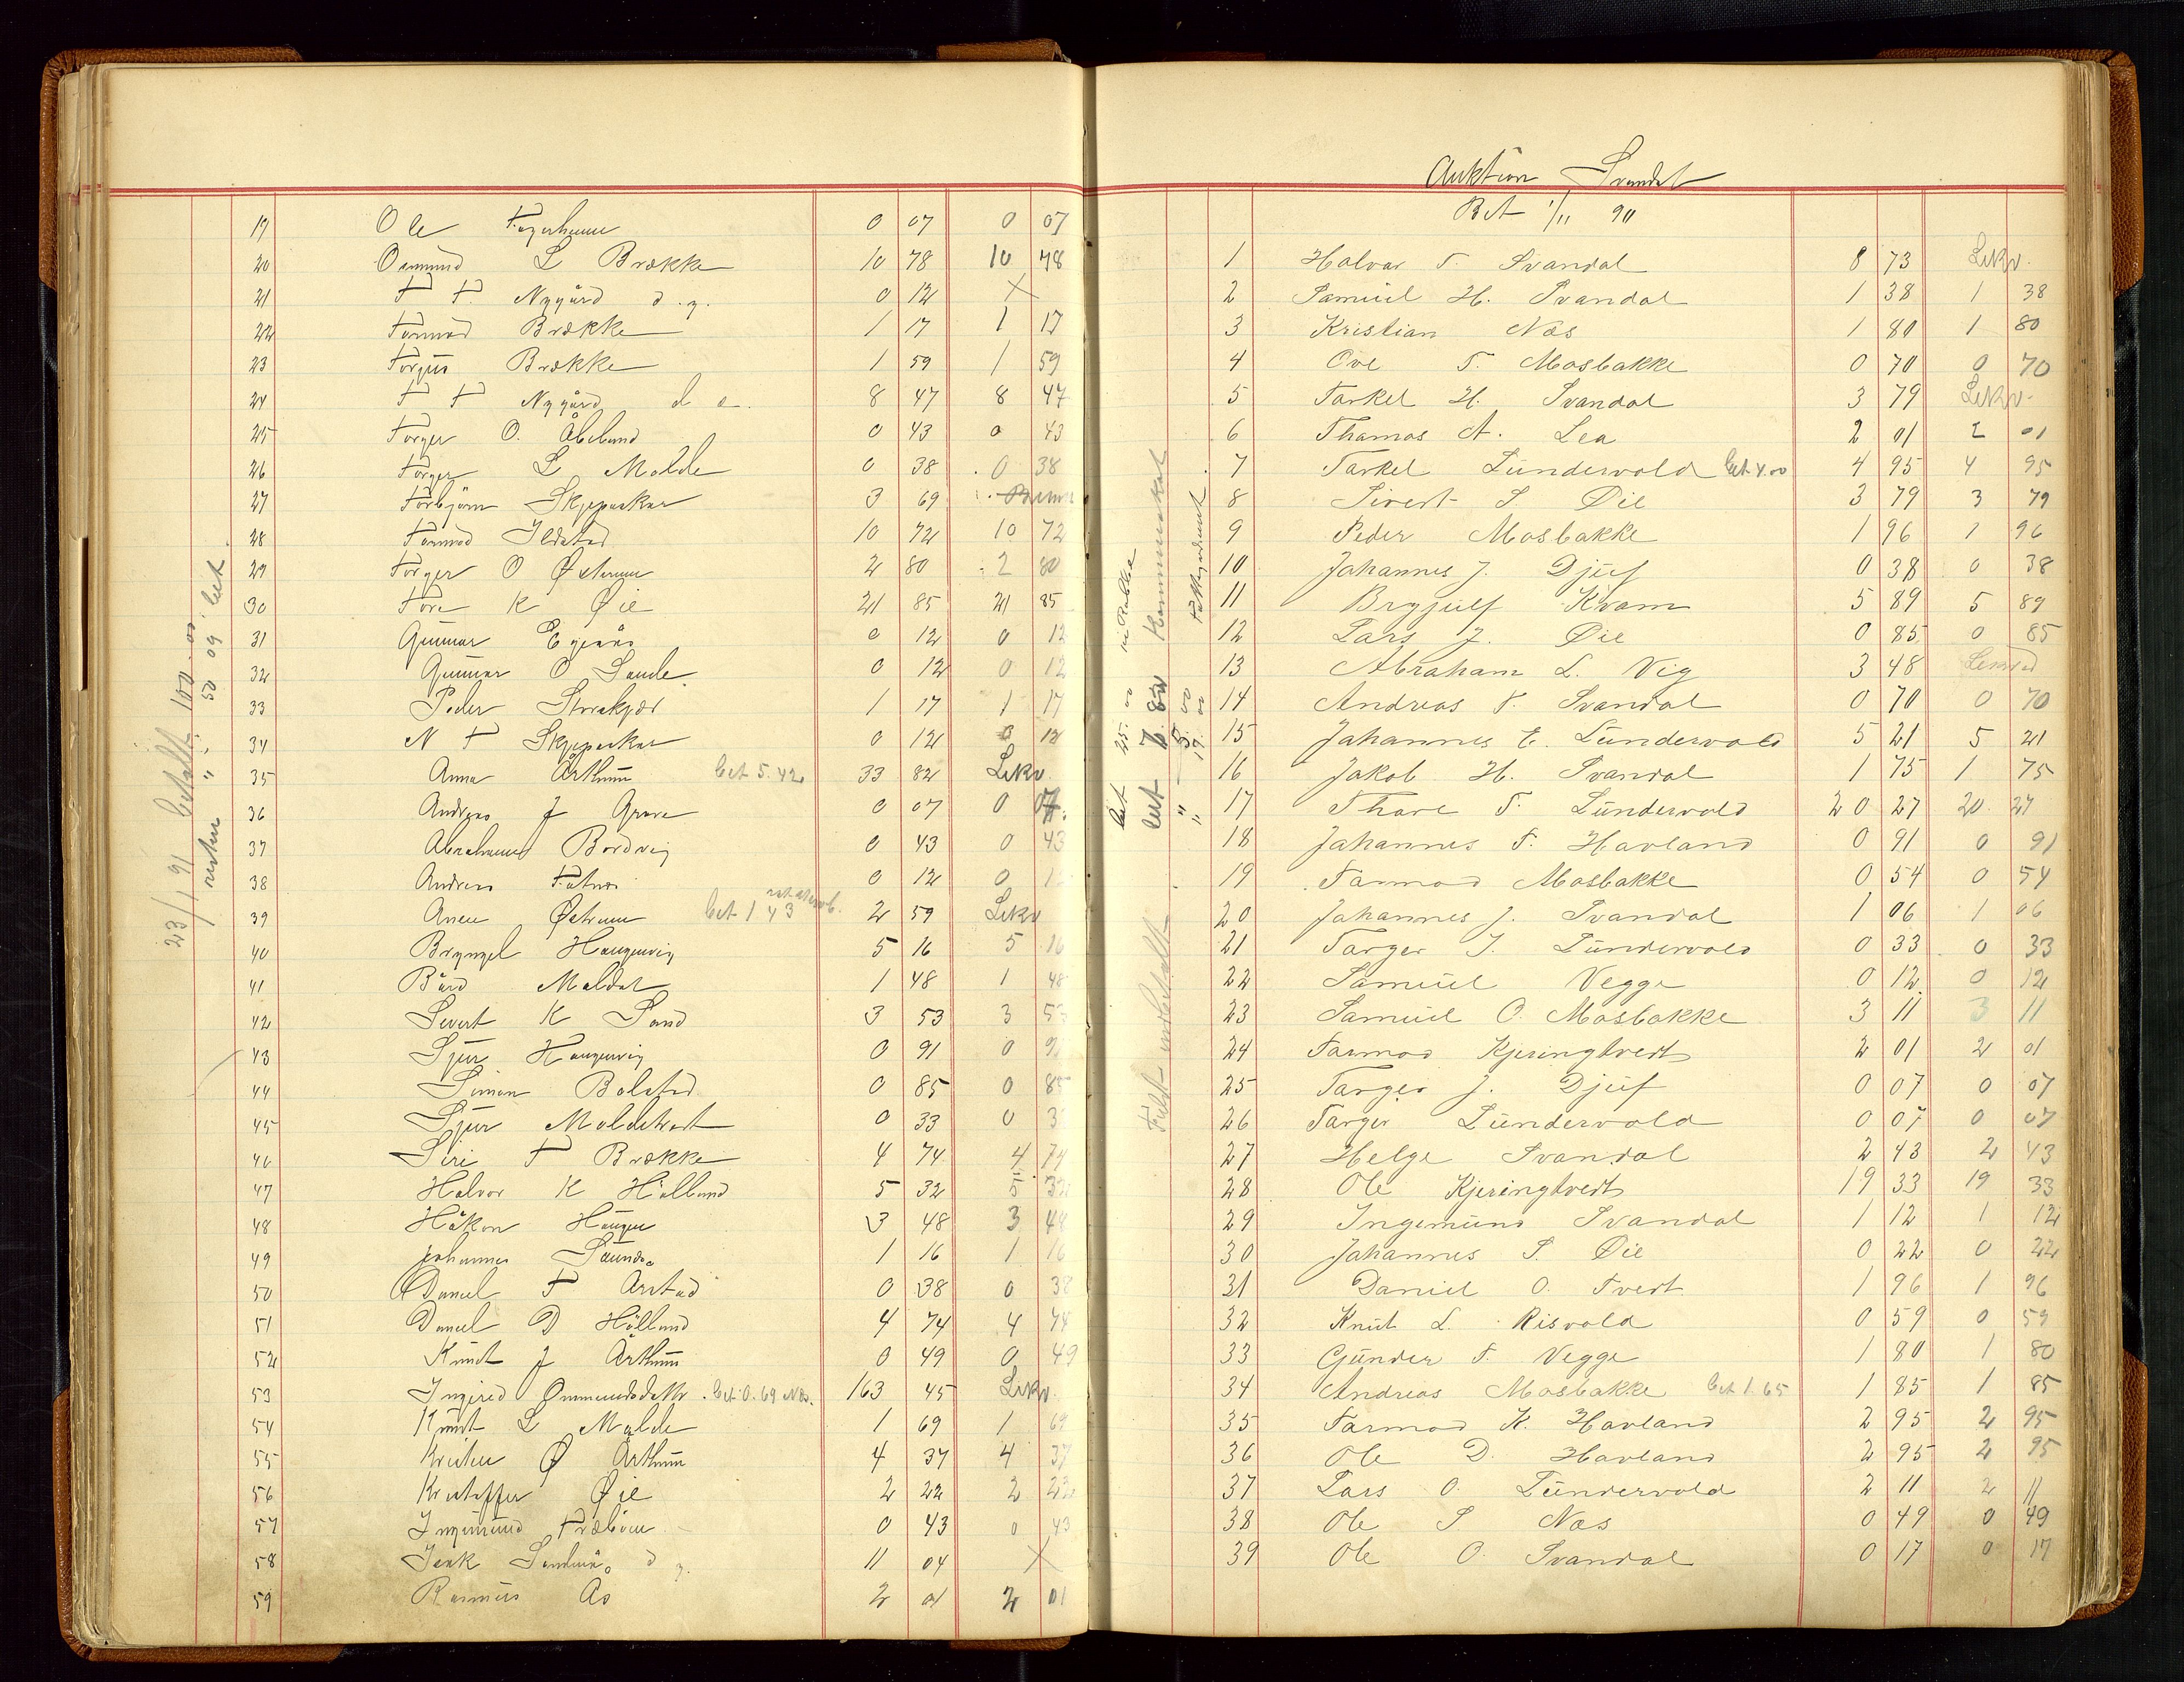 19 Ole 0 07 0 07
20 Osmund L Brække 10 78 10 78
21 T T Nygård d.y. 0 12 X
22 Tormod Brække 1 17 1 17
23 Torjus Brække 1 59 1 59
24 T T Nygård d æ. 8 47 8 47
25 Torger O. Åbeland 0 43 0 43
26 Torger L Molde 0 38 0 38
27 Torbjörn Skjeparker 3 69
28 Tormod Ilstad 10 72 10 72
29 Torger O Østrum 2 80 2 80
30 Tore K Øie 21 85 21 85
31 Gunnar 0 12 0 12
32 Gunnar O Sande 0 12 0 12
33 Peder 1 17 1 17
34 N T Skjeparker 0 12 0 12
35 Anna Årthun bet 5.42 33 82 Lekv.
36 Andreas J Grave 0 07 0 07
37 Abraham Bordvig 0 43 0 43
38 Andreas 0 12 0 12
39 Anen Østrum bet 1 43 2 59 Lekv
40 Bryngel Haugarvig 5 16 5 16
41 Bård Maldal 1 48 1 48
42 Severt K Sand 3 53 3 53
43 Sjur Haugarvig 0 91 0 9
44 Simon Bolstad 0 85 0 85
45 Sjur Moldetvedt 0 33 0 3
46 Siri T Brække 4 74 4 74
47 Halvor K Hölland 5 32 5 32
48 Håkon Haugen 3 48 3 48
49 Johannes 1 16 1 16
50 Daniel T Årstad 0 38 0 38
51 Daniel D Hölland 4 74 4 74
52 Knut J Årthun 0 49 0 49
53 Ingired Ommundsdattr. bet 0.69 163 45 Lekv.
54 Knut L Molde 1 69 1 69
55 Kristen Ø Årthun 4 37 4 37
56 Kristoffer Øie 2 22 2 22
57 Ingemund 0 43 0 43
58 d y. 11 04 X
59 Rasmus Ås 2 01 2 01
23/1 91 betalt 100 00
" 50 09 bet
Auktion Svandal
Bet 1/11 90
1 Halvor T. Svandal 8 73 Lekv.
2 Samuel H. Svandal 1 38 1 38
3 Kristian Nas 1 80 1 80
4 Ove T. Mosbakke 0 70 0 70
5 Tarkel H. Svandal 3 79 Lekv.
6 Thomas A. Lea 2 01 2 01
7 Tarkel Lündervold bet 4.00 4 95 4 95
8 Sivert S Øie 3 79 3 79
9 Peder Mosbakke 1 96 1 96
10 Johannes J. Djüf 0 38 0 38
11 Brynjulf Kvam 5 89 5 89
12 Lars J. Øie 0 85 0 85
13 Abraham L. Vig 3 48
14 Andreas T. Svandal 0 70 0 70
15 Johannes E. Lündervold 5 21 5 21
16 Jakob H. Svandal 1 75 1 75
17 Thore T. Lündervold 20 27 20 27
18 Johannes T. Havland 0 91 0 91
19 Tarmod Mosbakke 0 54 0 54
20 Johannes J. Svandal 1 06 1 06
21 Targer T. Lündervold 0 33 0 33
22 Samuel Vegge 0 12 0 12
23 Samuel O. Mosbakke 3 11 3 11
24 Tarmod Kjeringtveit 2 01 2 01
25 Targer J. Djüf 0 07 0 07
26 Targer Lündervold 0 07 0 07
27 Helge Svandal 2 43 2 43
28 Ole Kjeringtveit 19 33 19 33
29 Ingemund Svandal 1 12 1 12
30 Johannes S. Øie 0 22 0 22
31 Daniel O. Tveit 1 96 1 96
32 Knut L. Risvold 0 59 0 59
33 Günder T. Vegge 1 80 1 80
34 Andreas Mosbakke bet 1.65 1 85 1 85
35 Tarmod K. Havland 2 95 2 95
36 Ole D. Havland 2 95 2 95
37 Lars O. Lündervold 2 11 2 11
38 Ole S Nas 0 49 0 49
39 Ole O. Svandal 0 17 0 17
bet 25.00
bet 7.82 Kommuneskat
" 5.00
" 17.00